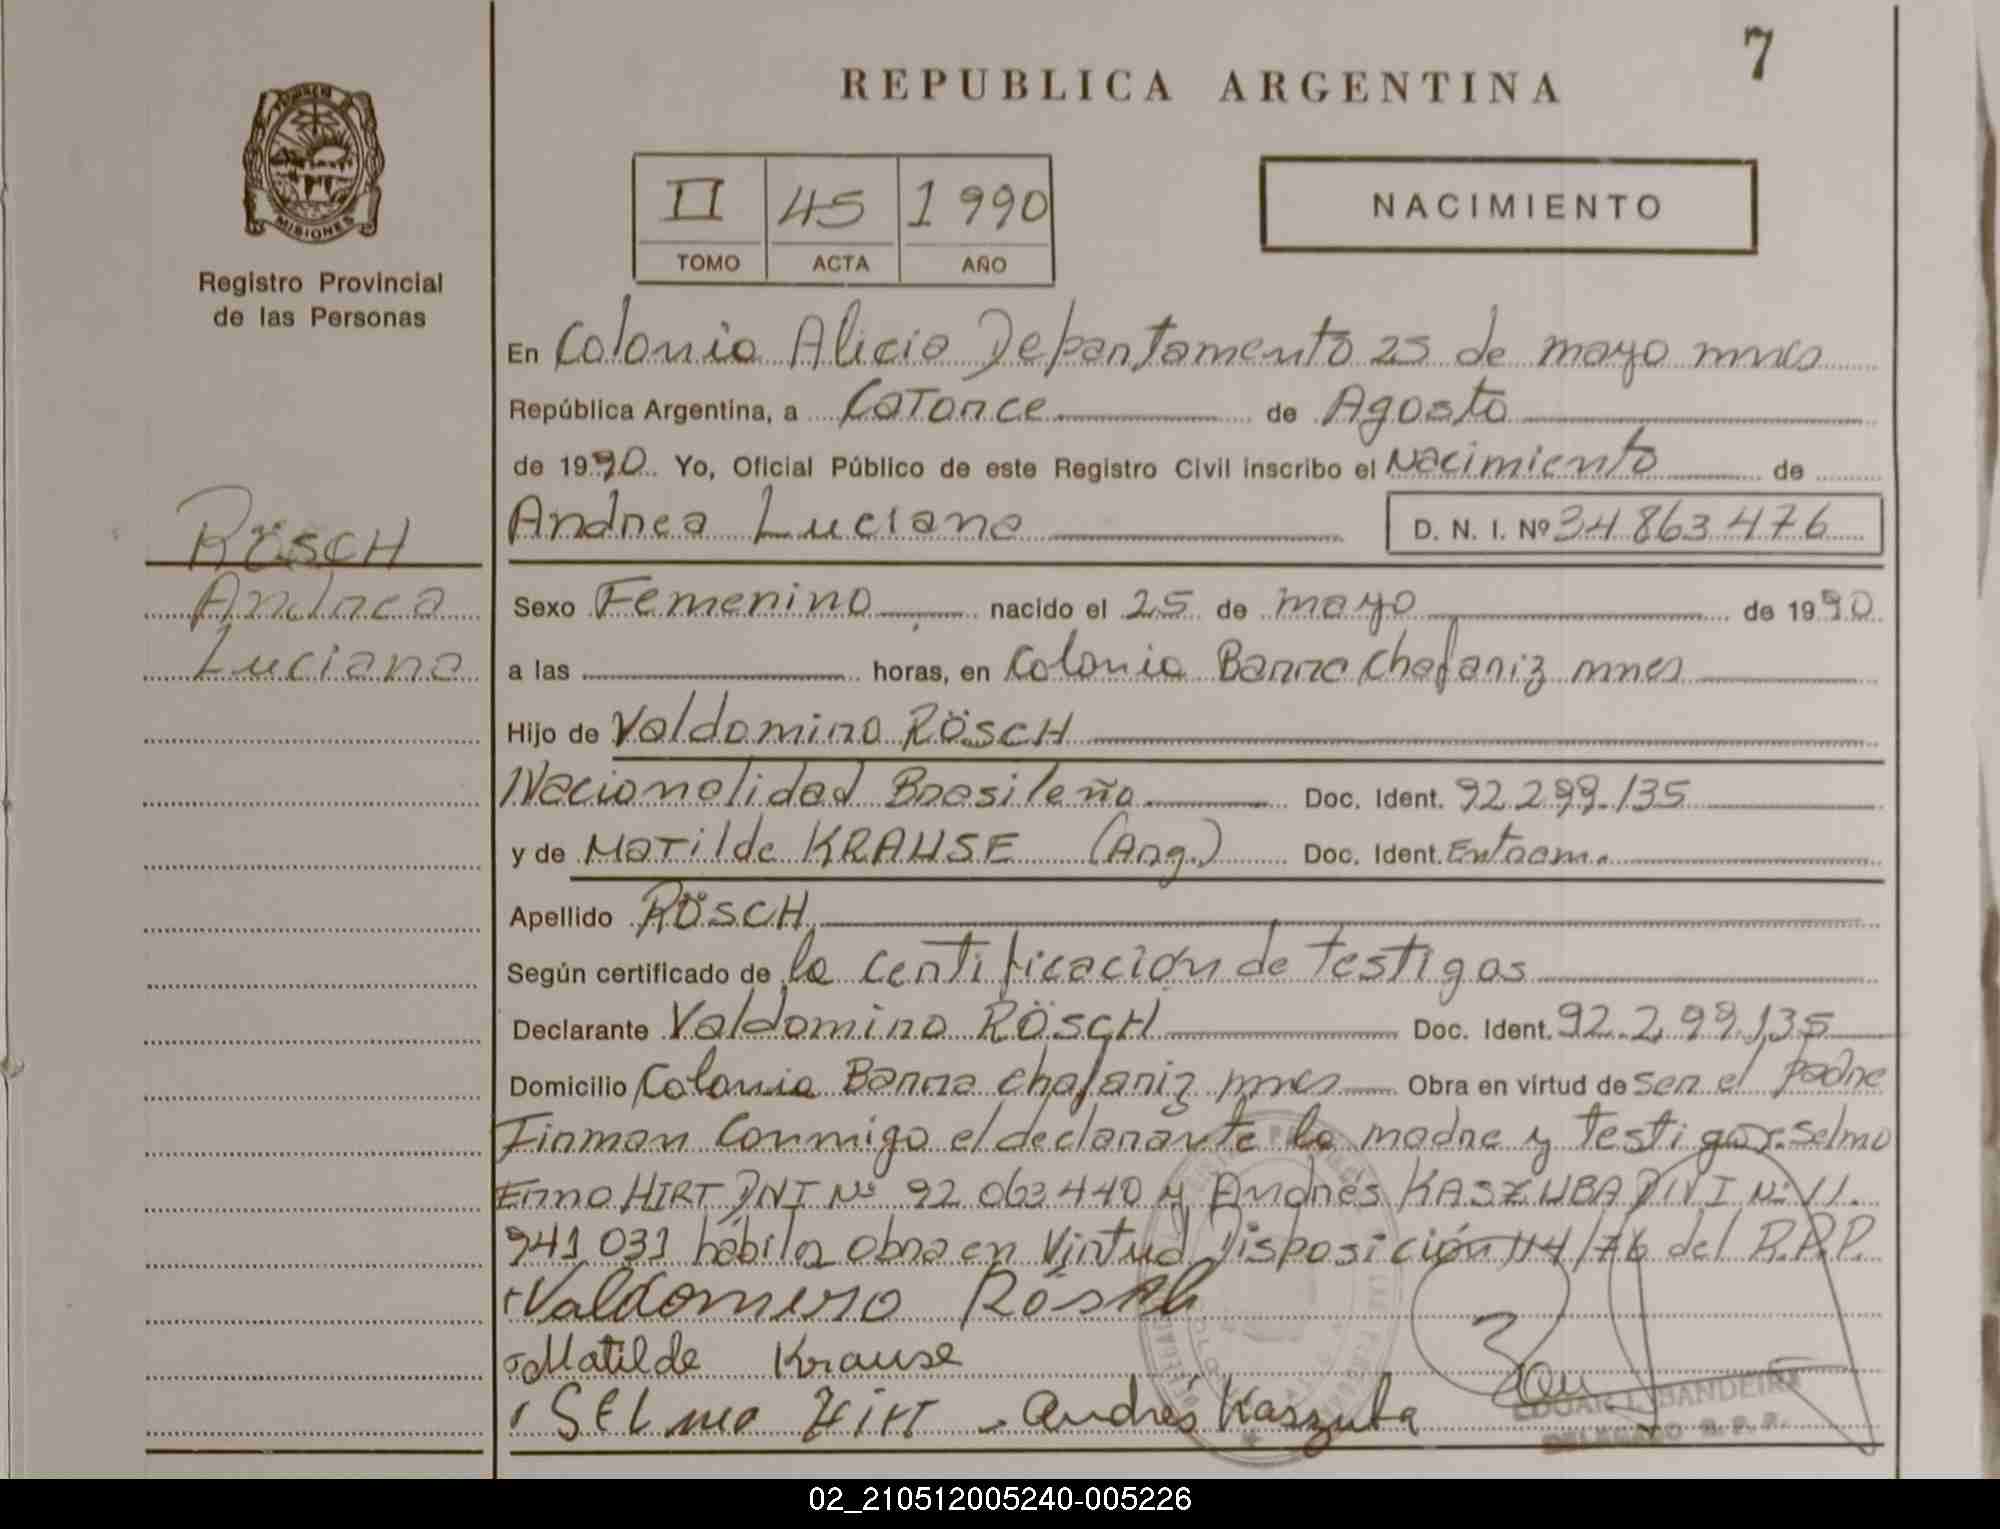 7
REPUBLICA ARGENTINA
MISIONES
Registro Provincial
de las Personas
II 45 1990
TOMO ACTA AÑO
NACIMIENTO
En Colonia Alicia Departamento 25 de mayo mnes
República Argentina, a Catorce de Agosto
de 1990 Yo, Oficial Público de este Registro Civil inscribo el Nacimiento de
Andrea Luciana D. N. I. Nº 34 863 476
RÖSCH
Andrea
Luciana
Sexo Femenino nacido el 25 de mayo de 1990
a las horas, en Colonia Barra Chafariz mnes
Hijo de Valdomiro RÖSCH
Nacionalidad Brasileña Doc. Ident. 92.299.135
y de Matilde KRAUSE (Arg.) Doc. Ident. Entram.
Apellido RÖSCH
Según certificado de la certificación de testigos
Declarante Valdomiro RÖSCH Doc. Ident. 92.299.135
Domicilio Colonia Barra chafariz mnes Obra en virtud de ser el padre
Firman Conmigo el declarante la madre y testigos. Selmo
Erno HIRT DNI Nº 92 063.440 y Andrés KASZUBA DNI Nº 11.
941 031 Obra en Virtud Disposición 114/76 del R.P.P.
Valdomiro Rösch
Matilde Krause
SELmo HiRT Andrés Kaszuba
BANDEIRA
DELEGADO R. P. P.
02_210512005240-005226